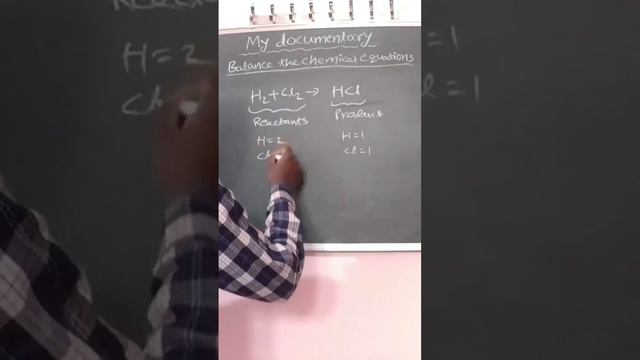 My documentary
Balance the Chemical equations
H₂ + Cl₂ → HCl
Reactants Product
H=2 H=1
Cl Cl=1